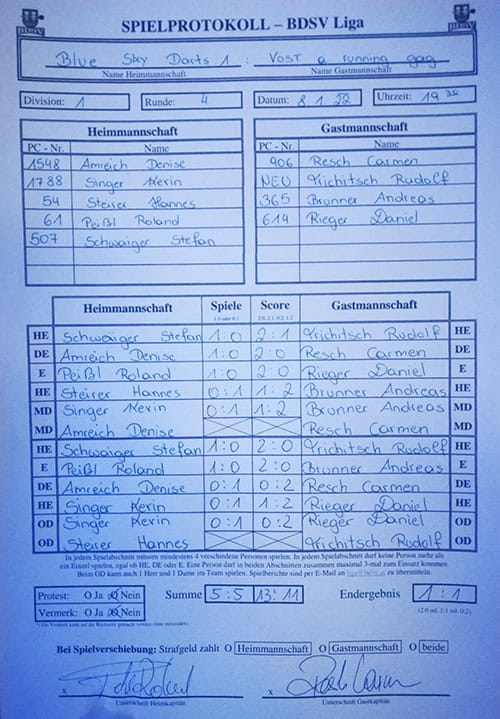 SPIELPROTOKOLL – BDSV Liga
BDSV BDSV
Blue Sky Darts 1 : Vost a running gag
Name Heimmannschaft Name Gastmannschaft
Division: 1 Runde: 4 Datum: 8 1. 22 Uhrzeit: 19 30
Heimmannschaft Gastmannschaft
PC - Nr. Name PC - Nr. Name
1548 Amreich Denise 906 Resch Carmen
1788 Singer Kevin NEU Krichitsch Rudolf
54 Steirer Hannes 365 Brunner Andreas
61 Peißl Roland 614 Rieger Daniel
507 Schwaiger Stefan
Heimmannschaft Spiele Score Gastmannschaft
1:0 oder 0:1 2:0, 2:1, 0:2, 1:2
HE Schwaiger Stefan 1:0 2:1 Krichitsch Rudolf HE
DE Amreich Denise 1:0 2:0 Resch Carmen DE
E Peißl Roland 1:0 2:0 Rieger Daniel E
HE Steirer Hannes 0:1 1:2 Brunner Andreas HE
MD Singer Kevin 0:1 1:2 Brunner Andreas MD
MD Amreich Denise Resch Carmen MD
HE Schwaiger Stefan 1:0 2:0 Krichitsch Rudolf HE
E Peißl Roland 1:0 2:0 Brunner Andreas E
DE Amreich Denise 0:1 0:2 Resch Carmen DE
HE Singer Kevin 0:1 1:2 Rieger Daniel HE
OD Singer Kevin 0:1 0:2 Rieger Daniel OD
OD Steirer Hannes Krichitsch Rudolf OD
In jedem Spielabschnitt müssen mindestens 4 verschiedene Personen spielen. In jedem Spielabschnitt darf keine Person mehr als
ein Einzel spielen, egal ob HE, DE oder E. Eine Person darf in beiden Abschnitten zusammen maximal 3-mal zum Einsatz kommen
Beim OD kann auch 1 Herr und 1 Dame im Team spielen. Spielberichte sind per E-Mail an zu übermitteln.
Protest: O Ja O Nein Summe 5:5 13:11 Endergebnis 1:1
Vermerk: O Ja O Nein (2:0 od. 1:1 od. 0:2)
Bei Spielverschiebung: Strafgeld zahlt O Heimmannschaft O Gastmannschaft O beide
x x
Unterschrift Heimkapitän Unterschrift Gastkapitän